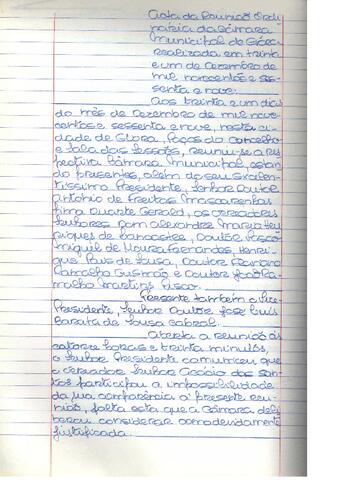 Acta da Reunião Ordi
nária da Câmara
Municipal de Évora
realizada em trinta
e um de Dezembro de
mil novecentos e ses-
senta e nove.
Aos trinta e um dias
do mês de Dezembro de mil nove
centos e sessenta e nove, nesta ci-
dade de Évora, Paços do Concelho
e Sala das Sessões, reuniu-se a res
pectiva Câmara Municipal, estan
do presentes, além do seu Excelen-
tíssimo Presidente, Senhor Doutor
António de Freitas Mascarenhas
Duarte Gerald, os vereadores
Senhores Dom Alexandre Maria Hen
riques de Lancastre, Doutor Vasco
Miguel de Moura Fernandes, Henri-
que Pais de Sousa, Doutor
Ramalho Gusmão e Doutor João Ra
malho Martins
Presente também o Vice-
Presidente, Senhor Doutor José Luís
Barata de Sousa Cabral.
Aberta a reunião às
catorze horas e trinta minutos,
o Senhor Presidente comunicou que
o vereador Senhor dos San-
tos participou a impossibilidade
da sua comparência à presente reu-
nião, falta esta que a Câmara deli
berou considerar como devidamente
justificada.